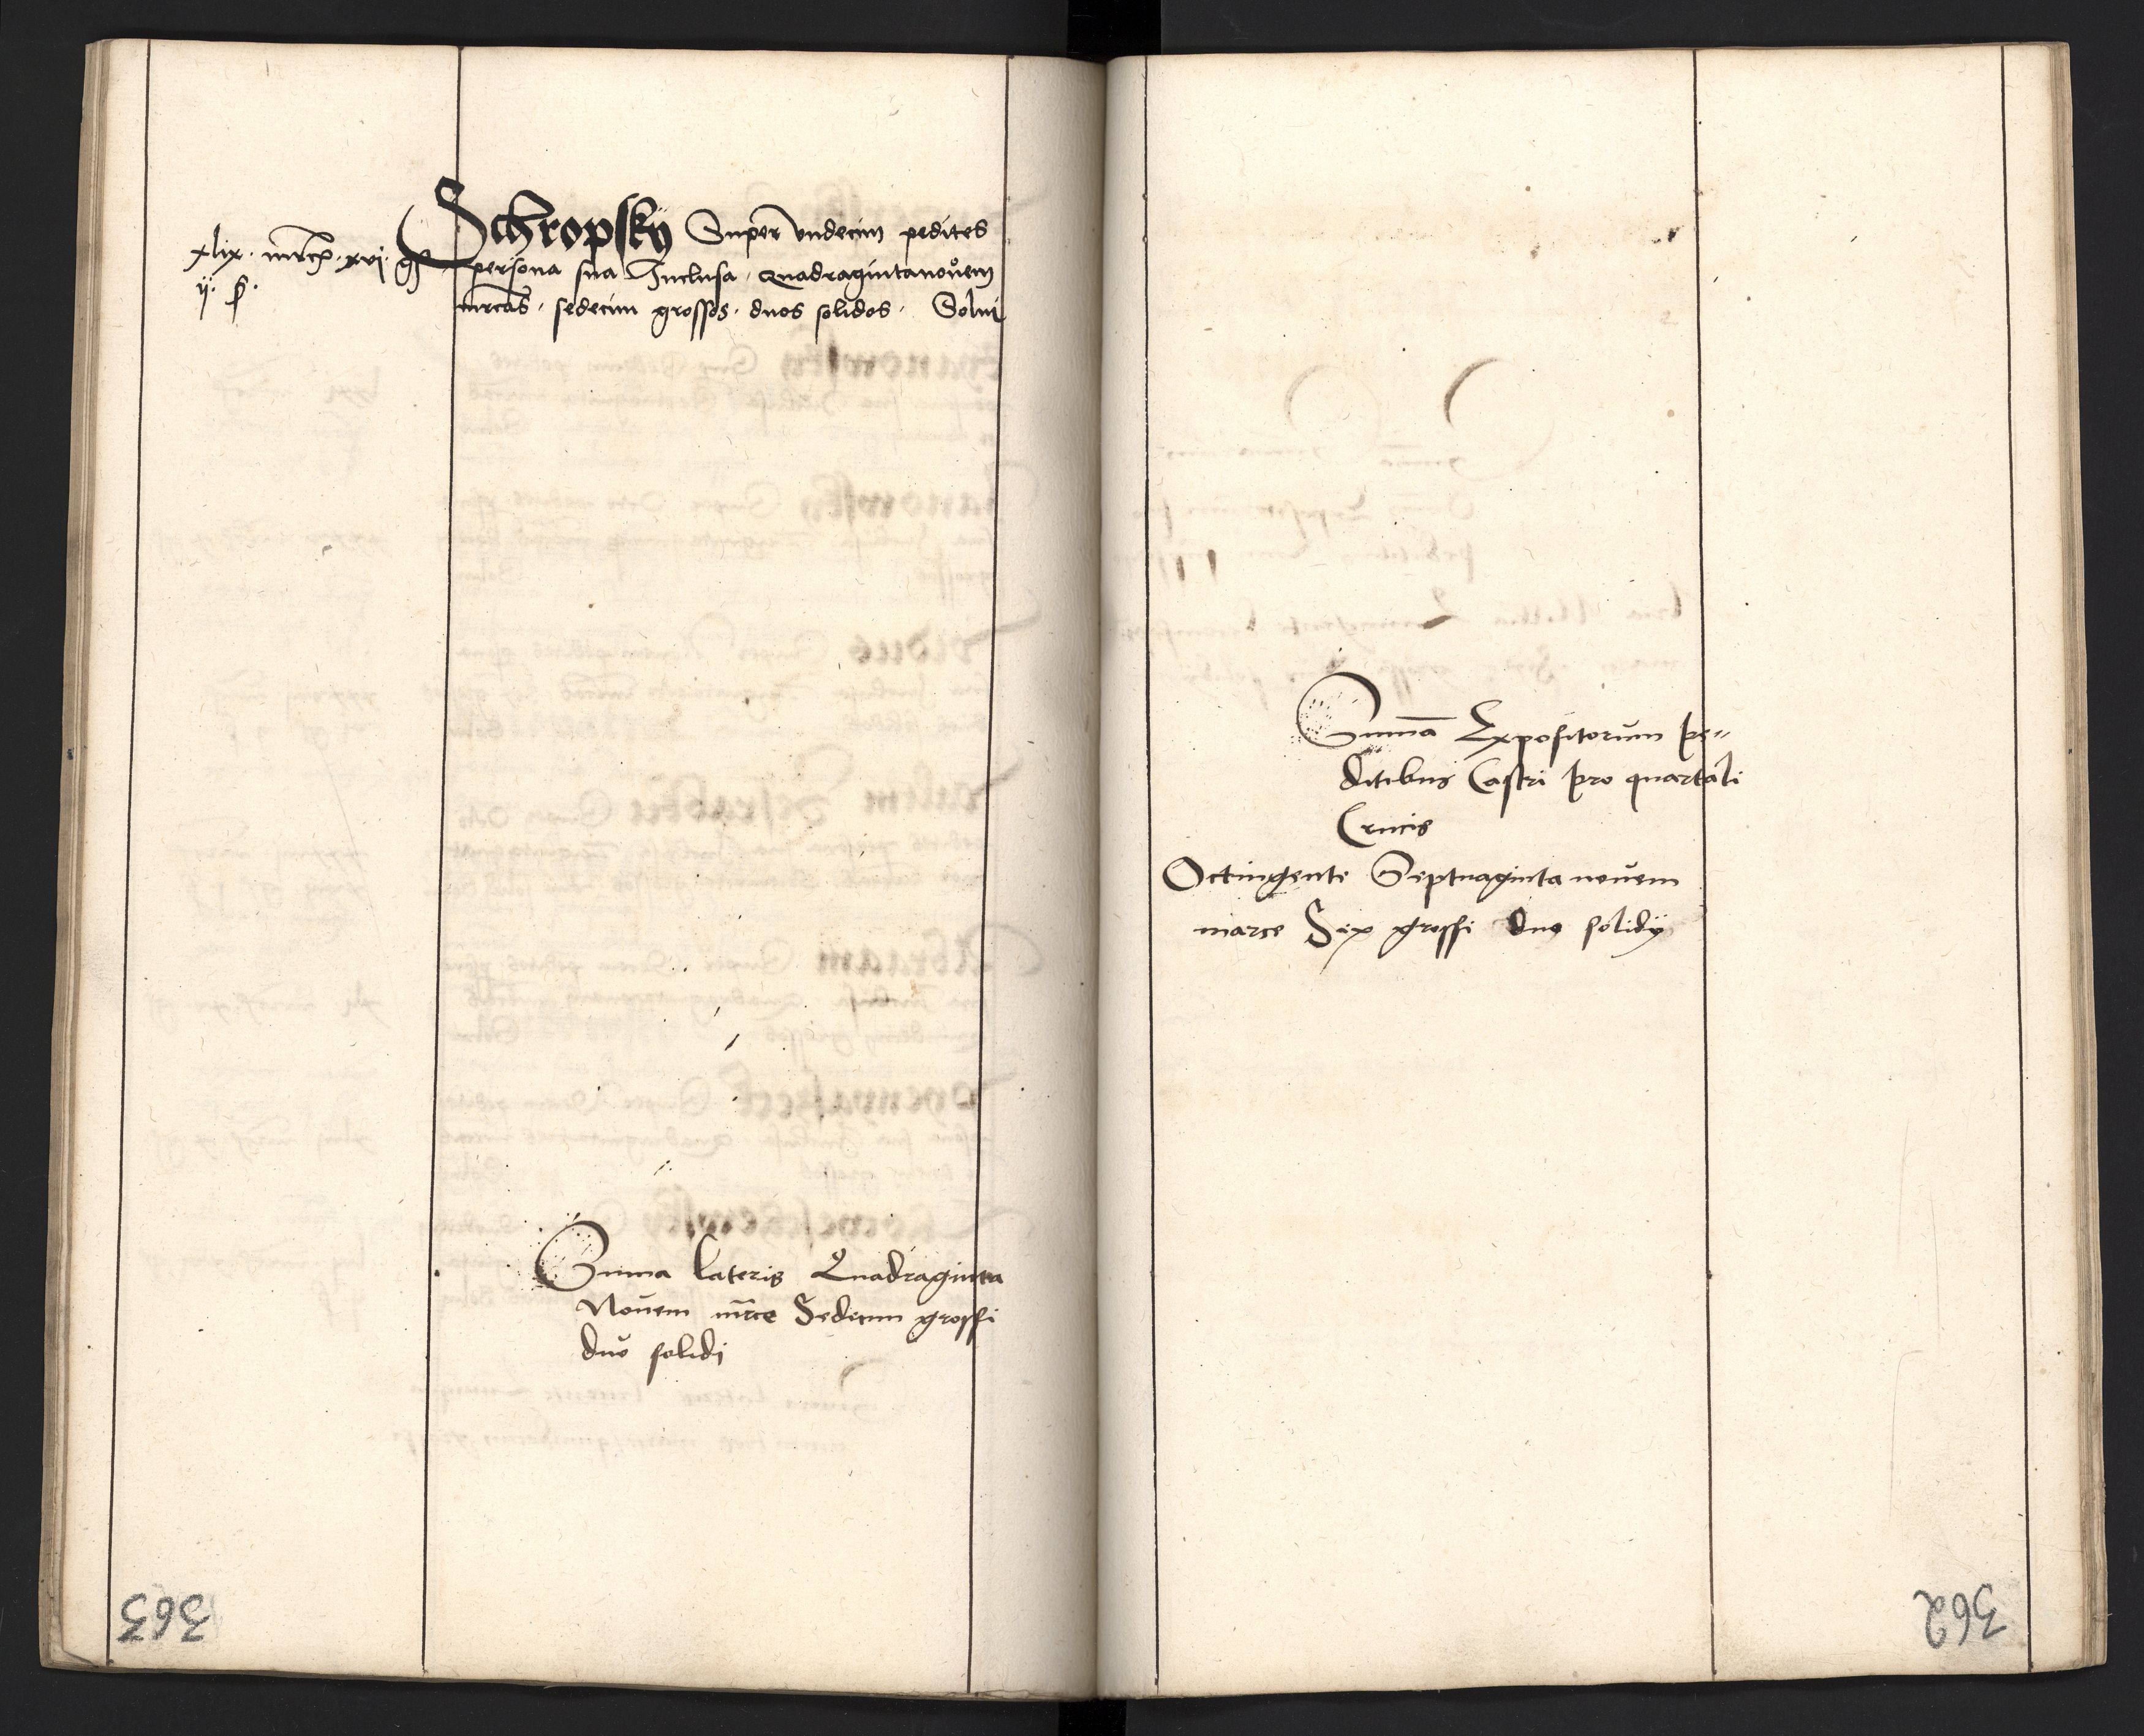 Schropsky Super vndecim pedites
xlix · mrcs · xvi · gs
persona sua Inclusa · quadragintanouem
ij · s ·
mrcas · sedecim grossos · duos solidos · Solui
Suma Lateris Quadraginta
Nouem mrce Sedecim grossi
duo solidi
363
Suma Expositorum pe=
ditibus Castri pro quartali
Crucis
Octingente Septuaginta nouem
marce Sex grossi duo solidy
362